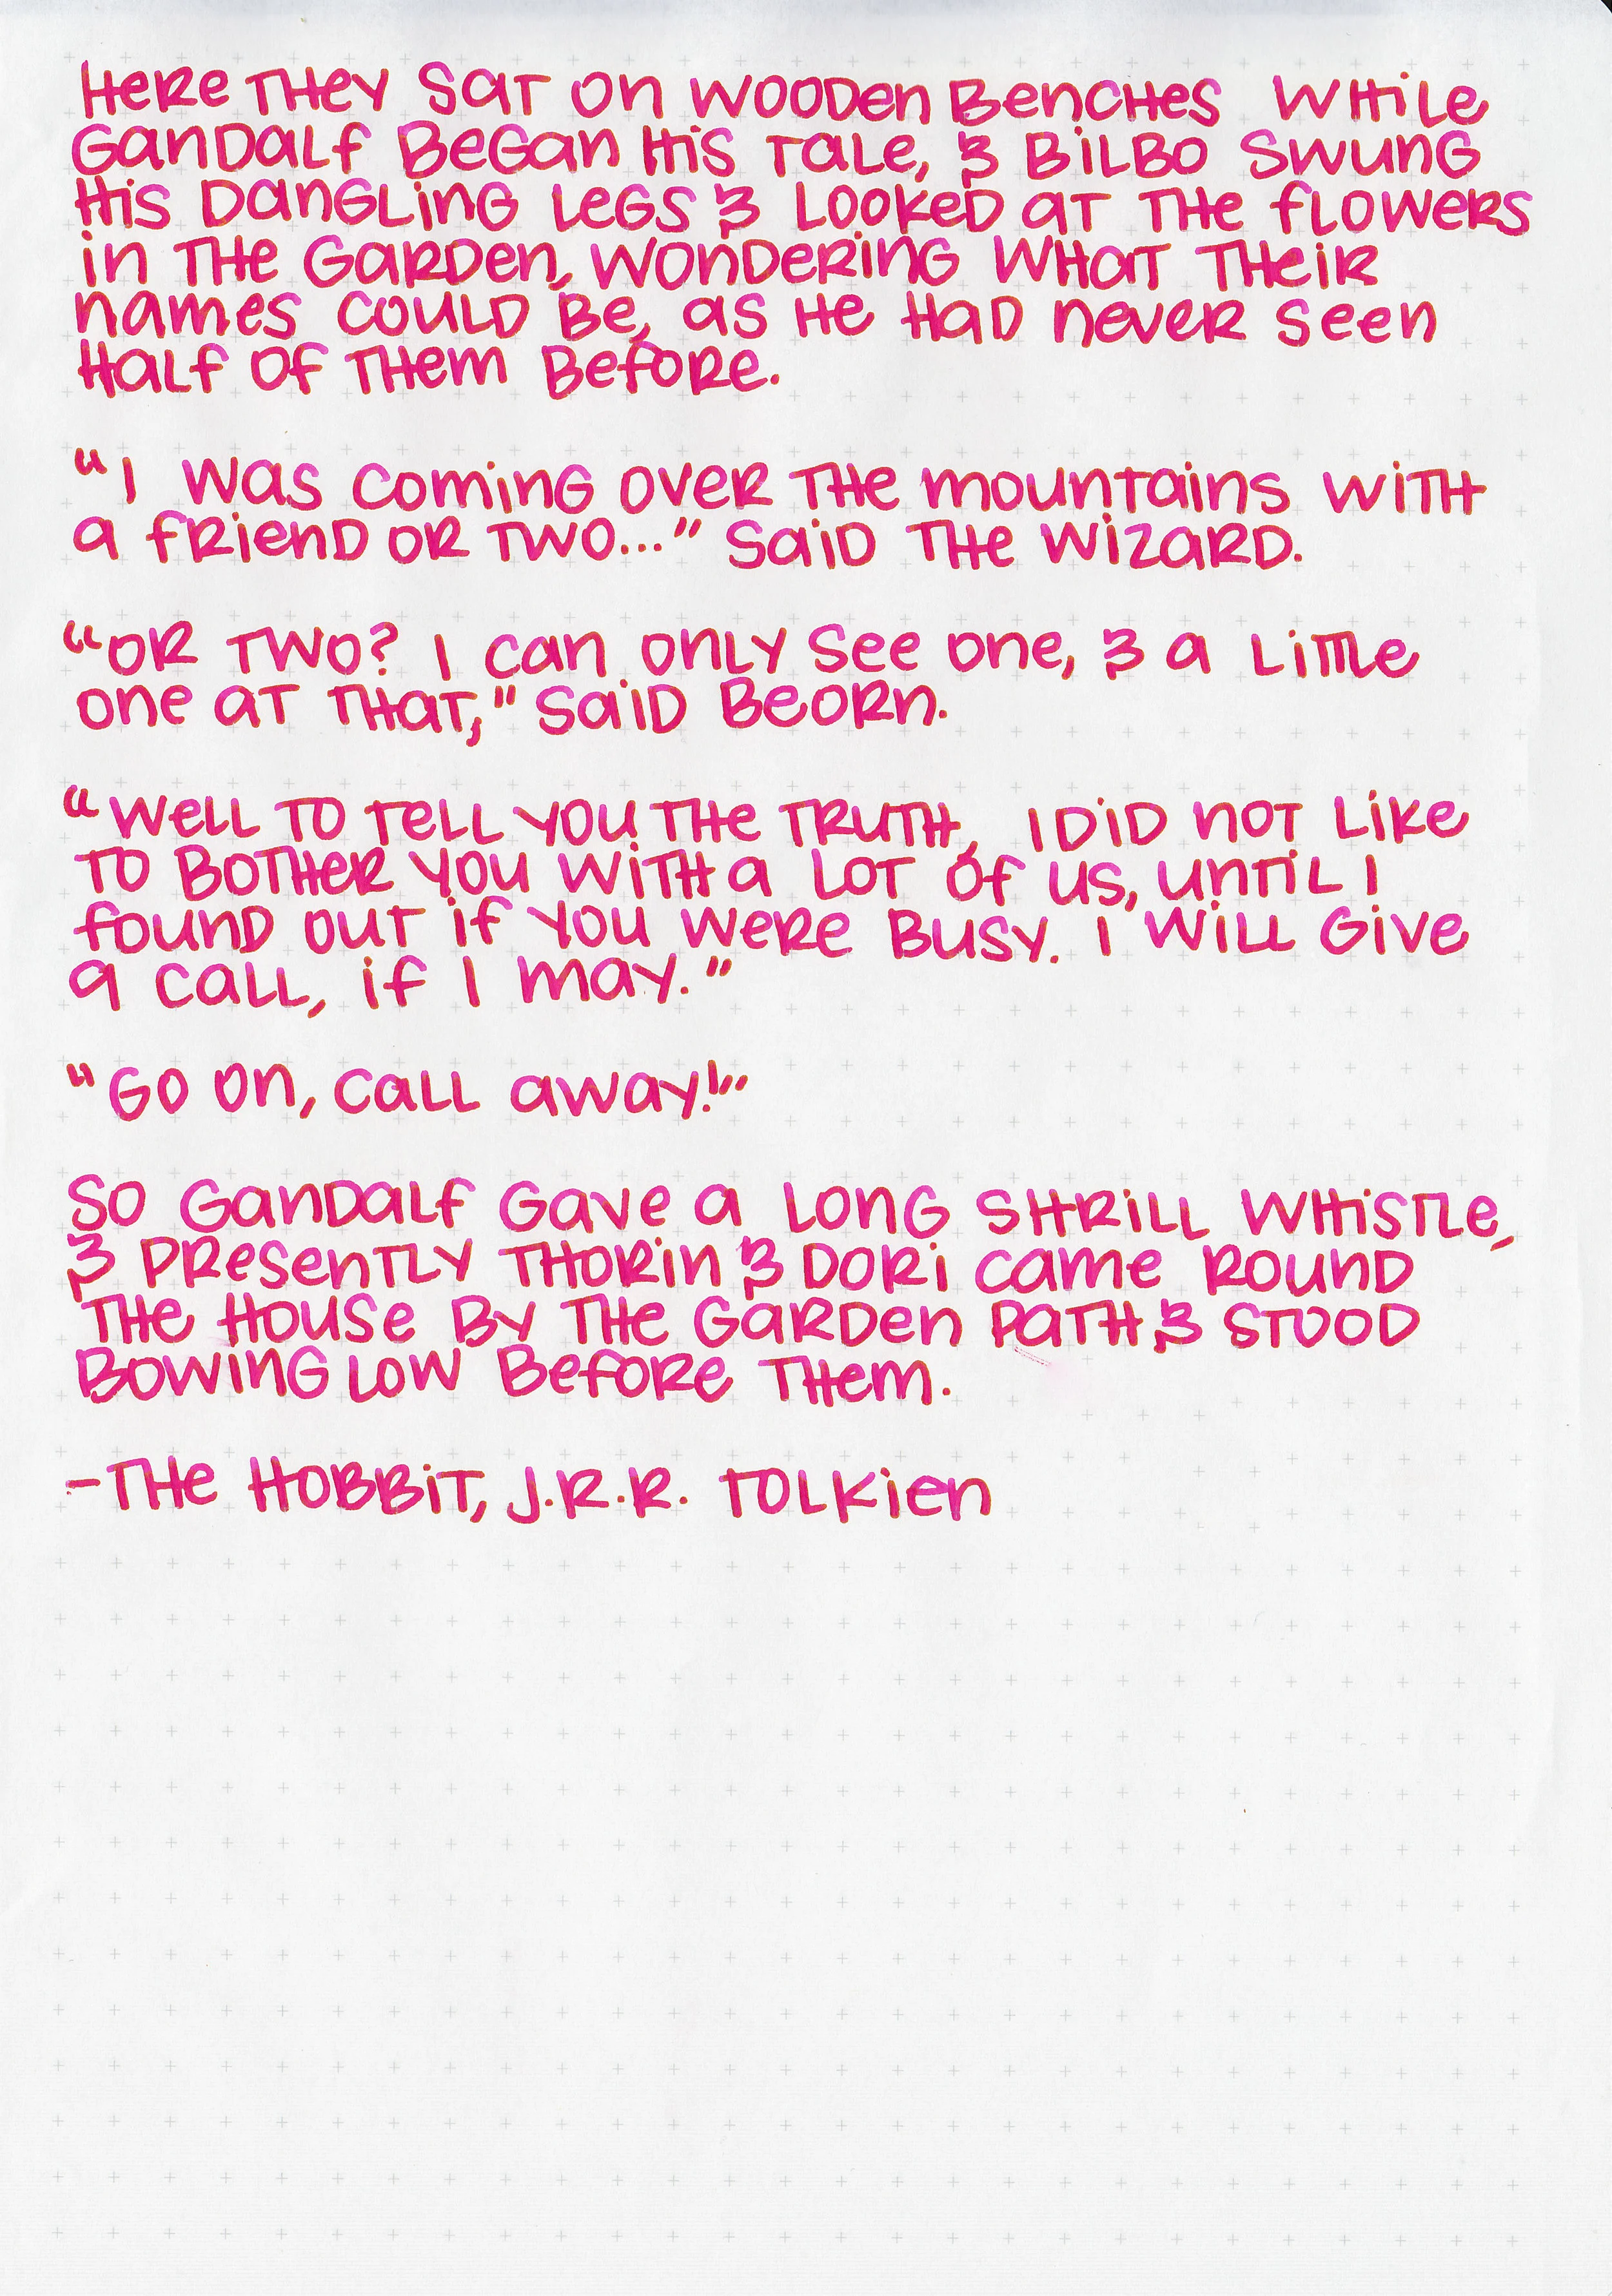 Here they sat on wooden benches while
Gandalf began his tale, & Bilbo swung
his dangling legs & looked at the flowers
in the garden, wondering what their
names could be, as he had never seen
half of them before.
"I was coming over the mountains with
a friend or two..." said the wizard.
"Or two? I can only see one, & a little
one at that," said Beorn.
"Well to tell you the truth, I did not like
to bother you with a lot of us, until I
found out if you were busy. I will give
a call, if I may."
"Go on, call away!"
So Gandalf gave a long shrill whistle,
& presently Thorin & Dori came round
the house by the garden path & stood
bowing low before them.
-The Hobbit, J.R.R. Tolkien